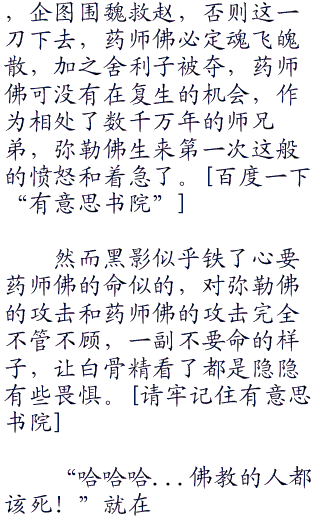 ，企图围魏救赵，否则这一
刀下去，药师佛必定魂飞魄
散，加之舍利子被夺，药师
佛可没有在复生的机会，作
为相处了数千万年的师兄
弟，弥勒佛生来第一次这般
的愤怒和着急了。[百度一下
“有意思书院”]
然而黑影似乎铁了心要
药师佛的命似的，对弥勒佛
的攻击和药师佛的攻击完全
不管不顾，一副不要命的样
子，让白骨精看了都是隐隐
有些畏惧。[请牢记住有意思
书院]
“哈哈哈...佛教的人都
该死！”就在